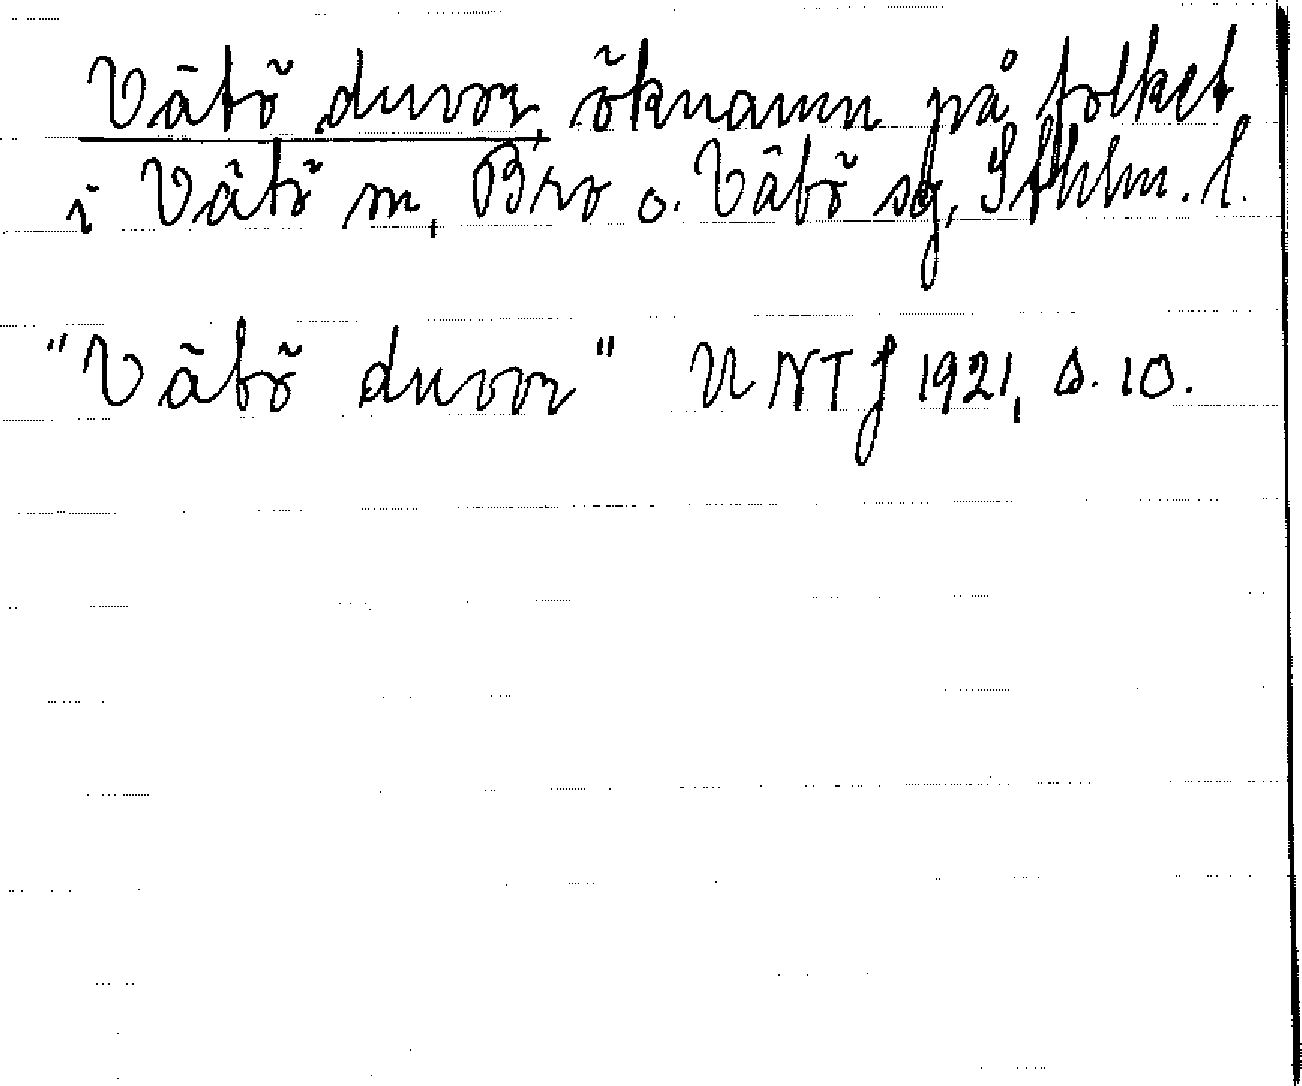 Vätö duvor, öknamn på folket
i Vätö m, Bro o. Vätö sg, Sthlm. l.
"Vätö duvor" UNTJ 1921, s. 10.